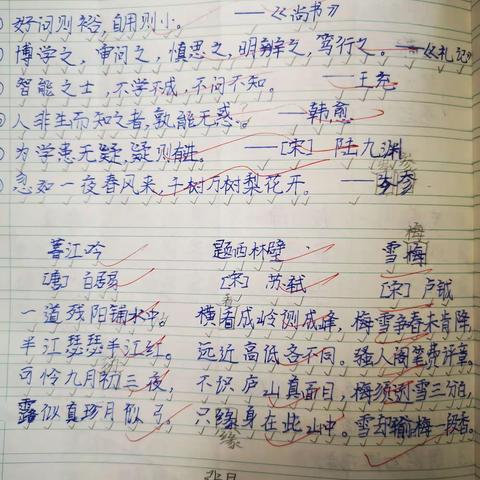 好问则裕,自用则小。——《尚书》
博学之,审问之,慎思之,明辨之,笃行之。——《礼记》
智能之士,不学不成,不问不知。——王充
人非生而知之者,孰能无惑。——韩愈
为学患无疑,疑则有进。——[宋] 陆九渊
忽如一夜春风来,千树万树梨花开。——岑参
暮江吟 题西林壁 雪梅
[唐] 白居易 [宋] 苏轼 [宋] 卢钺
一道残阳铺水中。 横看成岭侧成峰, 梅雪争春未肯降,
半江瑟瑟半江红。 远近高低各不同。 骚人阁笔费评章。
可怜九月初三夜, 不识庐山真面目, 梅须逊雪三分白,
露似真珍月似弓。 只缘身在此山中。 雪却输梅一段香。
缘